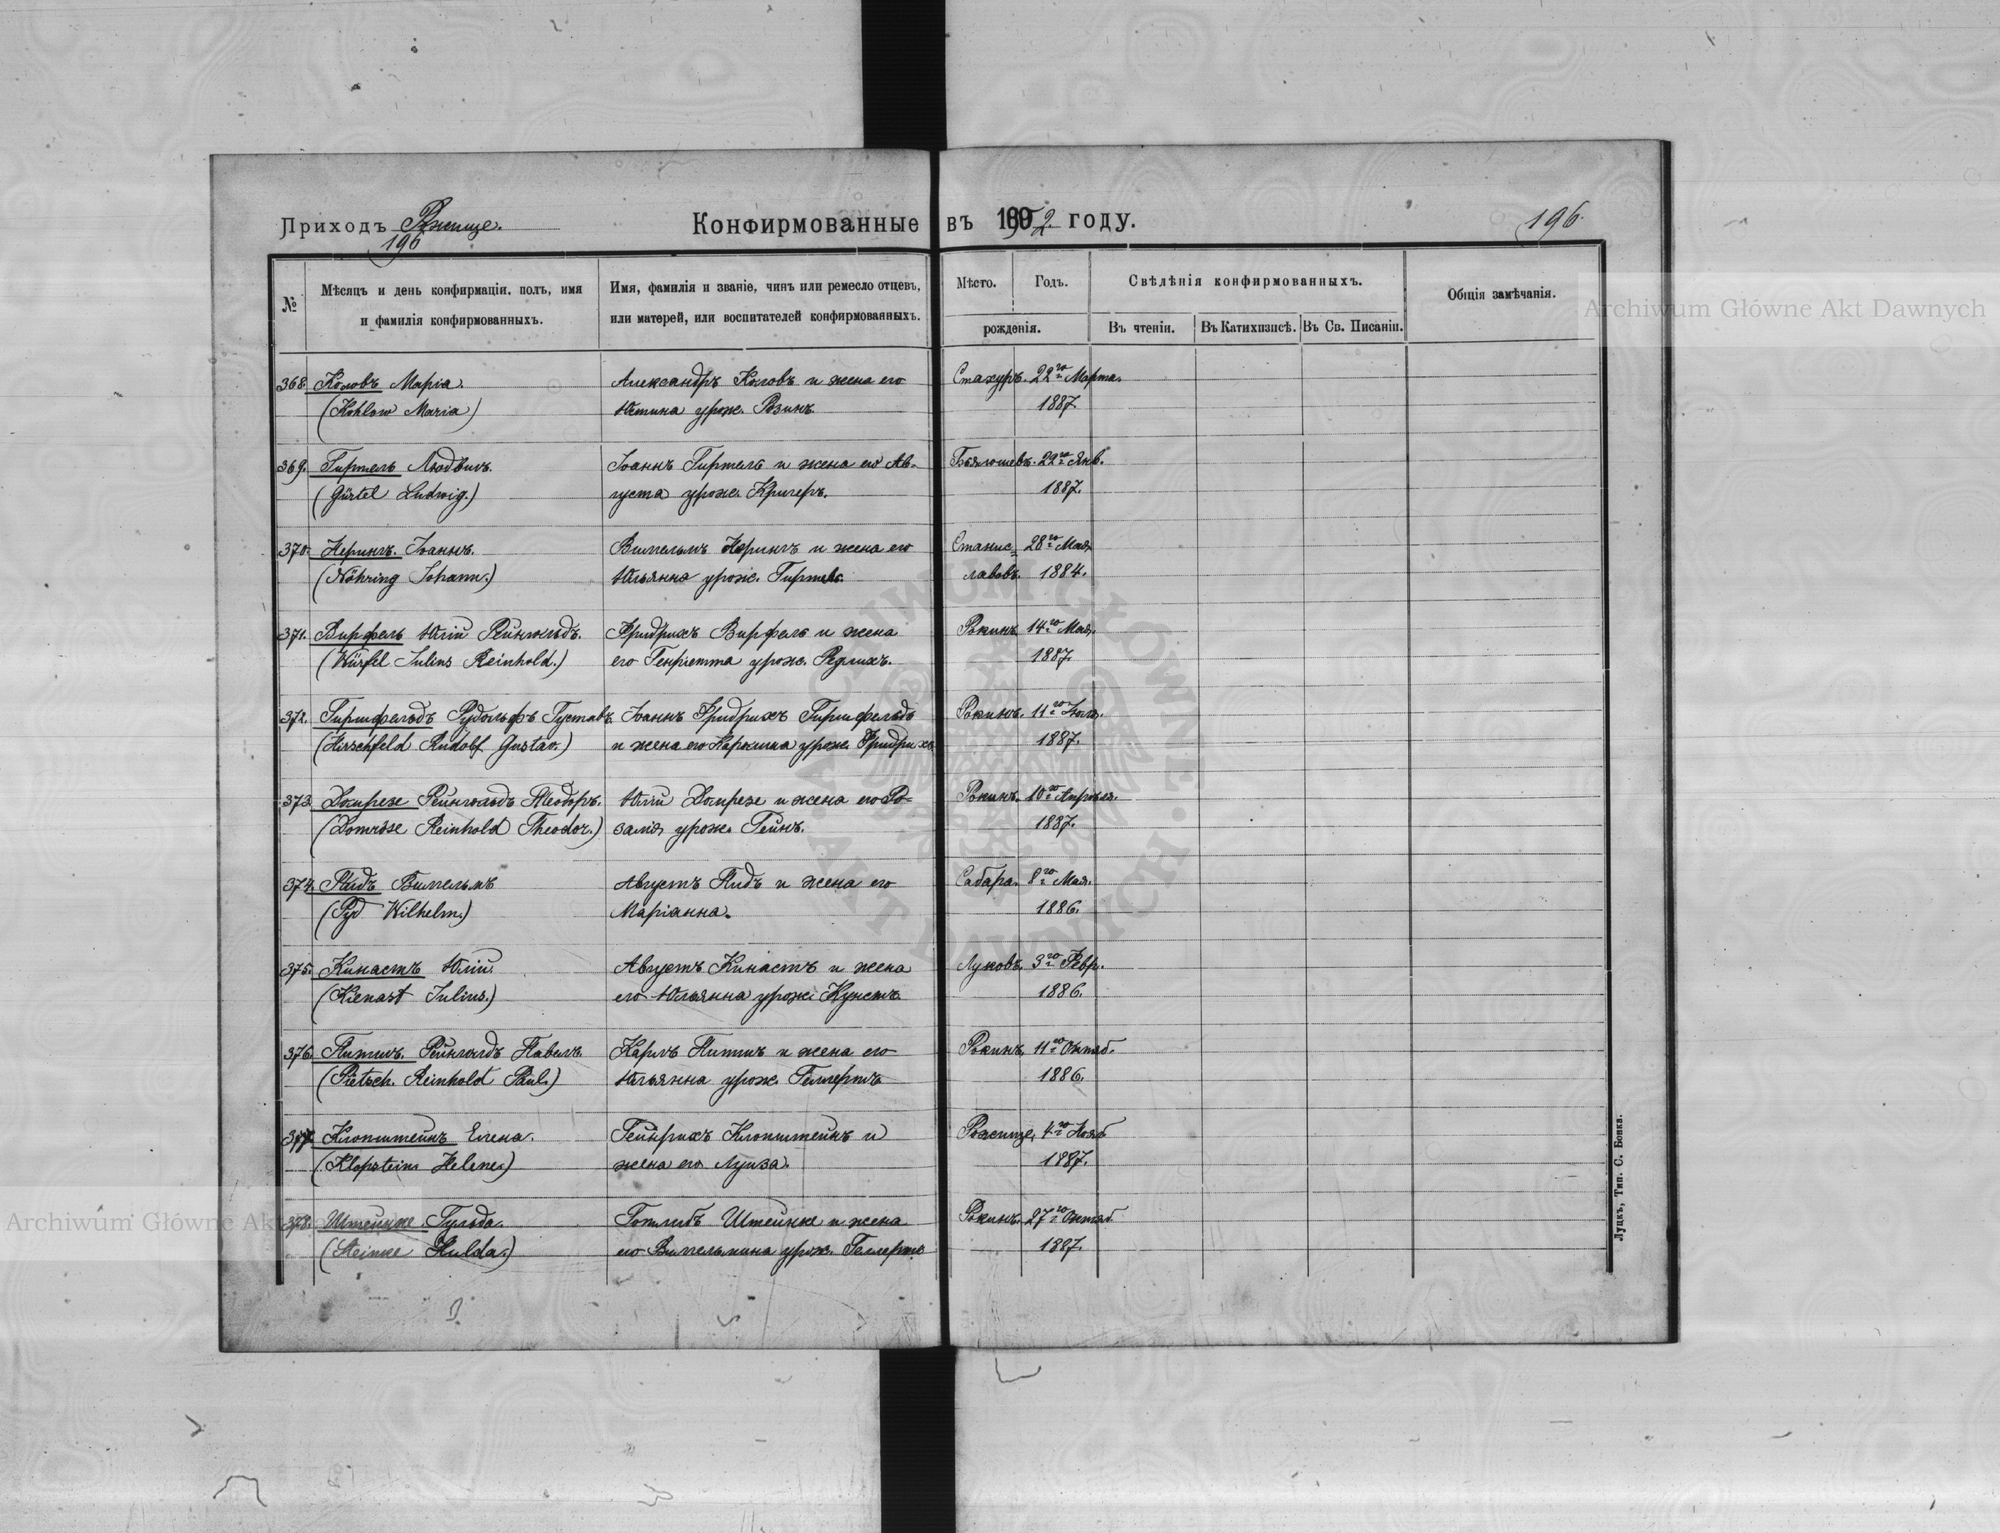 Приходъ Рожище.
196
Конфирмованные въ 1902. году.
196.
№
Мѣсяцъ и день конфирмаціи, полъ, имя
и фамилія конфирмованныхъ.
Имя, фамилія и званіе, чинъ или ремесло отцевъ,
или матерей, или воспитателей конфирмованныхъ.
Мѣсто. Годъ.
рожденія.
Свѣдѣнія конфирмованныхъ.
Въ чтеніи. Въ Катихизисѣ. Въ Св. Писаніи.
Общія замѣчанія.
368. Коловъ Марія. Александръ Коловъ и жена его 22го Марта.
(Kohlow Maria) урож. Розинъ 1887.
369. Гиртель Людвигъ. Іоаннъ Гиртель и жена его Ав- 22го Янв.
(Gürtel Ludwig.) густа урож. Кригеръ. 1887.
370. Нерингъ Іоаннъ. Вильгельмъ Нерингъ и жена его Станис= 28го Мая.
(Nöhring Johann.) Юльянна урож. Гиртель. лавовъ. 1884.
371. Вирфель Юлій Рейнгольдъ. Фридрихъ Вирфель и жена Рокинъ 14го Мая.
(Würfel Julius Reinhold.) его Генріетта урож. Редлихъ. 1887.
372. Гиршфельдъ Рудольфъ Густавъ. Іоаннъ Фридрихъ Гиршфельдъ Рокинъ. 11го
(Hirschfeld Rudolf Gustav.) и жена его Каролина урож. Фридрихъ 1887.
373. Домрезе Рейнгольдъ Теодоръ. Юлій Домрезе и жена его Ро= Рокинъ. 10го Апрѣля.
(Domröse Reinhold Theodor.) залія урож. Гейнъ. 1887.
374. Пидъ Вильгельмъ Августъ Пидъ и жена его Сабара. 8го Мая.
(Pyd Wilhelm.) Маріанна. 1886.
375. Кинастъ Юлій Августъ Кинастъ и жена Луковъ. 3го Февр.
(Kienast Julius.) его Юльянна урож. Кунстъ. 1886.
376. Питшъ Рейнгольдъ Павелъ. Карлъ Питшъ и жена его Рокинъ, 11го Октяб.
(Pietsch Reinhold Paul.) Юльянна урож. Геллертъ 1886.
377. Клопштейнъ Елена. Гейнрихъ Клопштейнъ и Рожище, 4го Нояб
(Klopstein Helene.) жена его Луиза. 1887.
378. Штейнке Гульда. Готлибъ Штейнке и жена Рокинъ. 27го Октяб
(Steinke Hulda.) его Вильгельмина урож. Геллертъ 1887.
Луцкъ, Тип. С. Бонка.
Archiwum Główne Akt Dawnych
Archiwum Główne Akt
ARCHIWUM GŁÓWNE AKT DAWNYCH